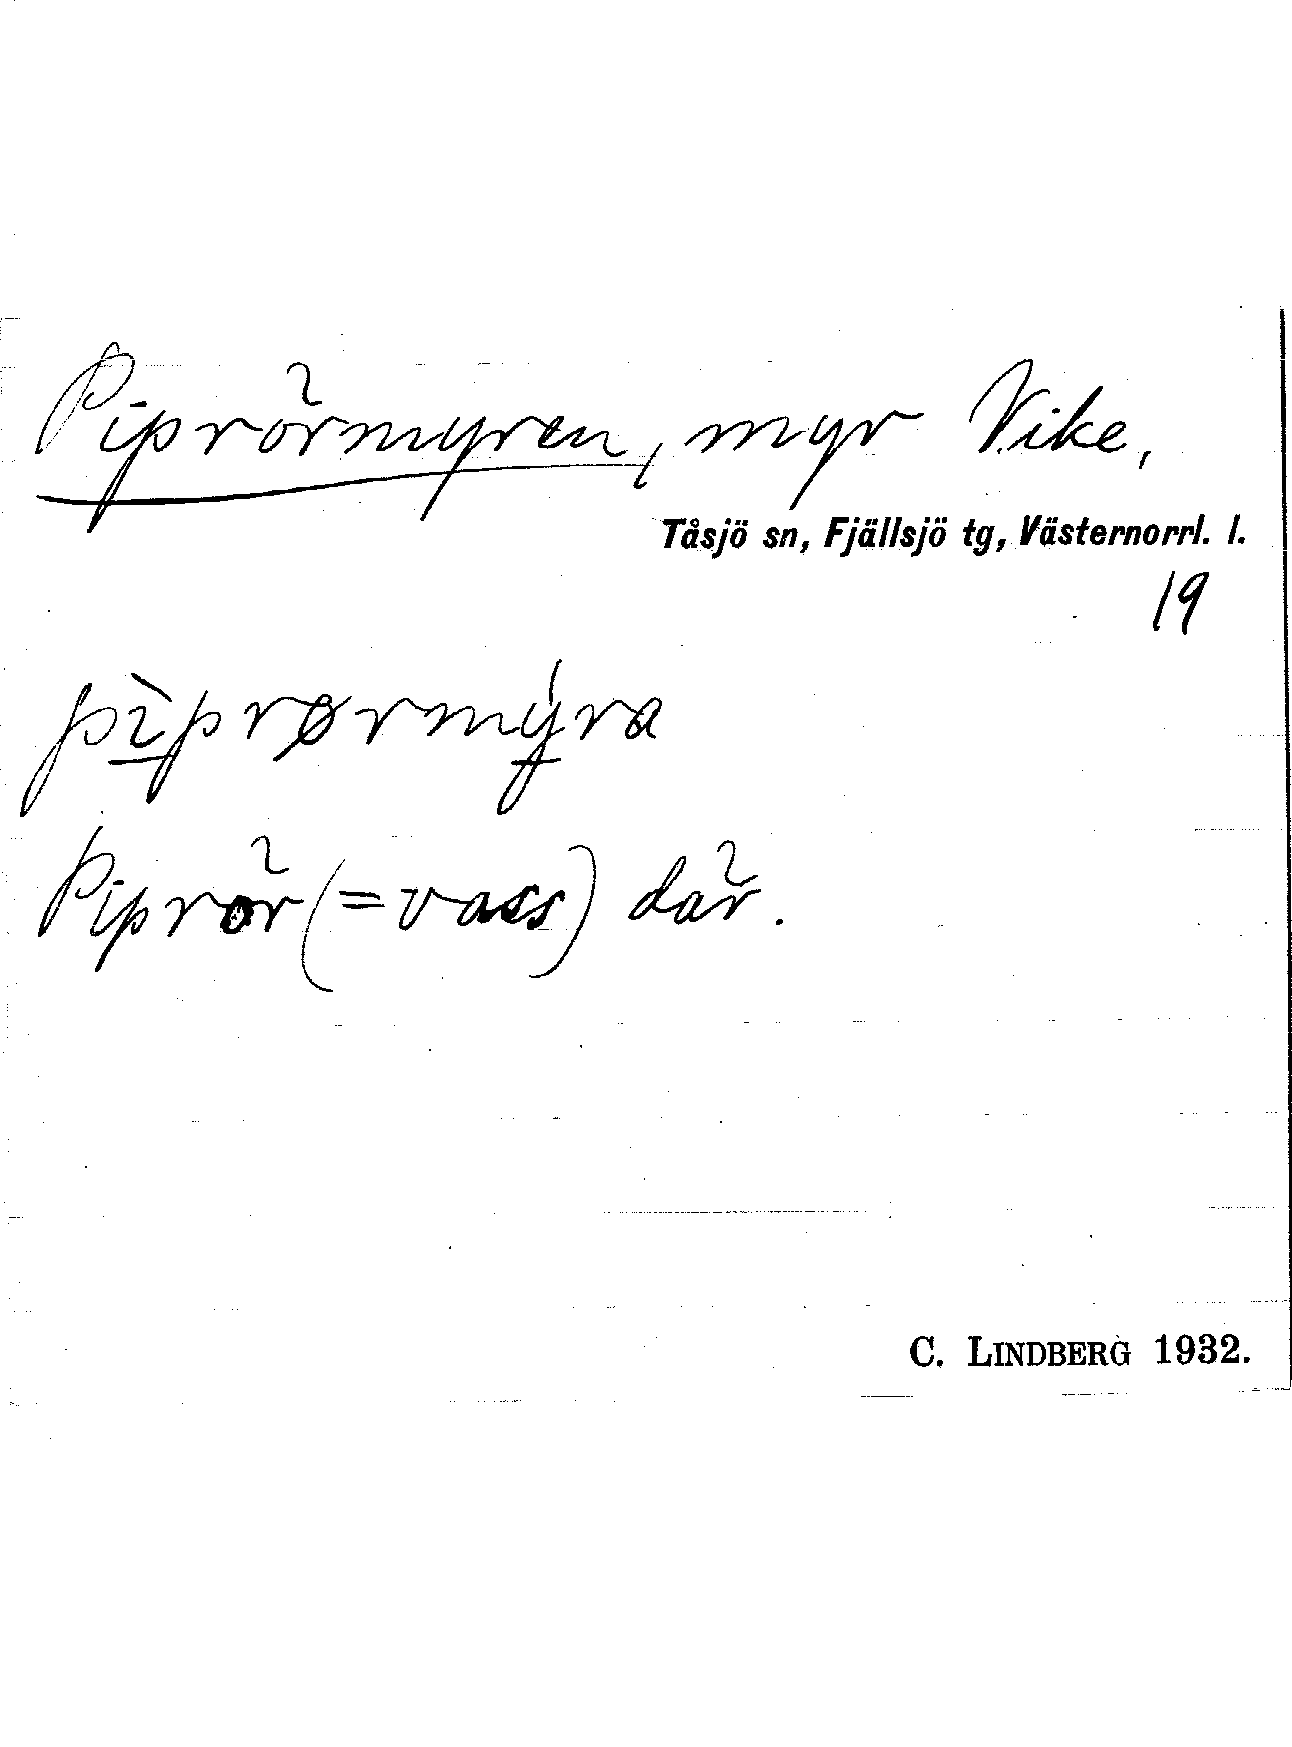 Piprörmyren, myr Vike,
Tåsjö sn, Fjällsjö tg, Västernorrl. l.
19
pìprørmýra
Piprör (= vass) där.
C. LINDBERG 1932.